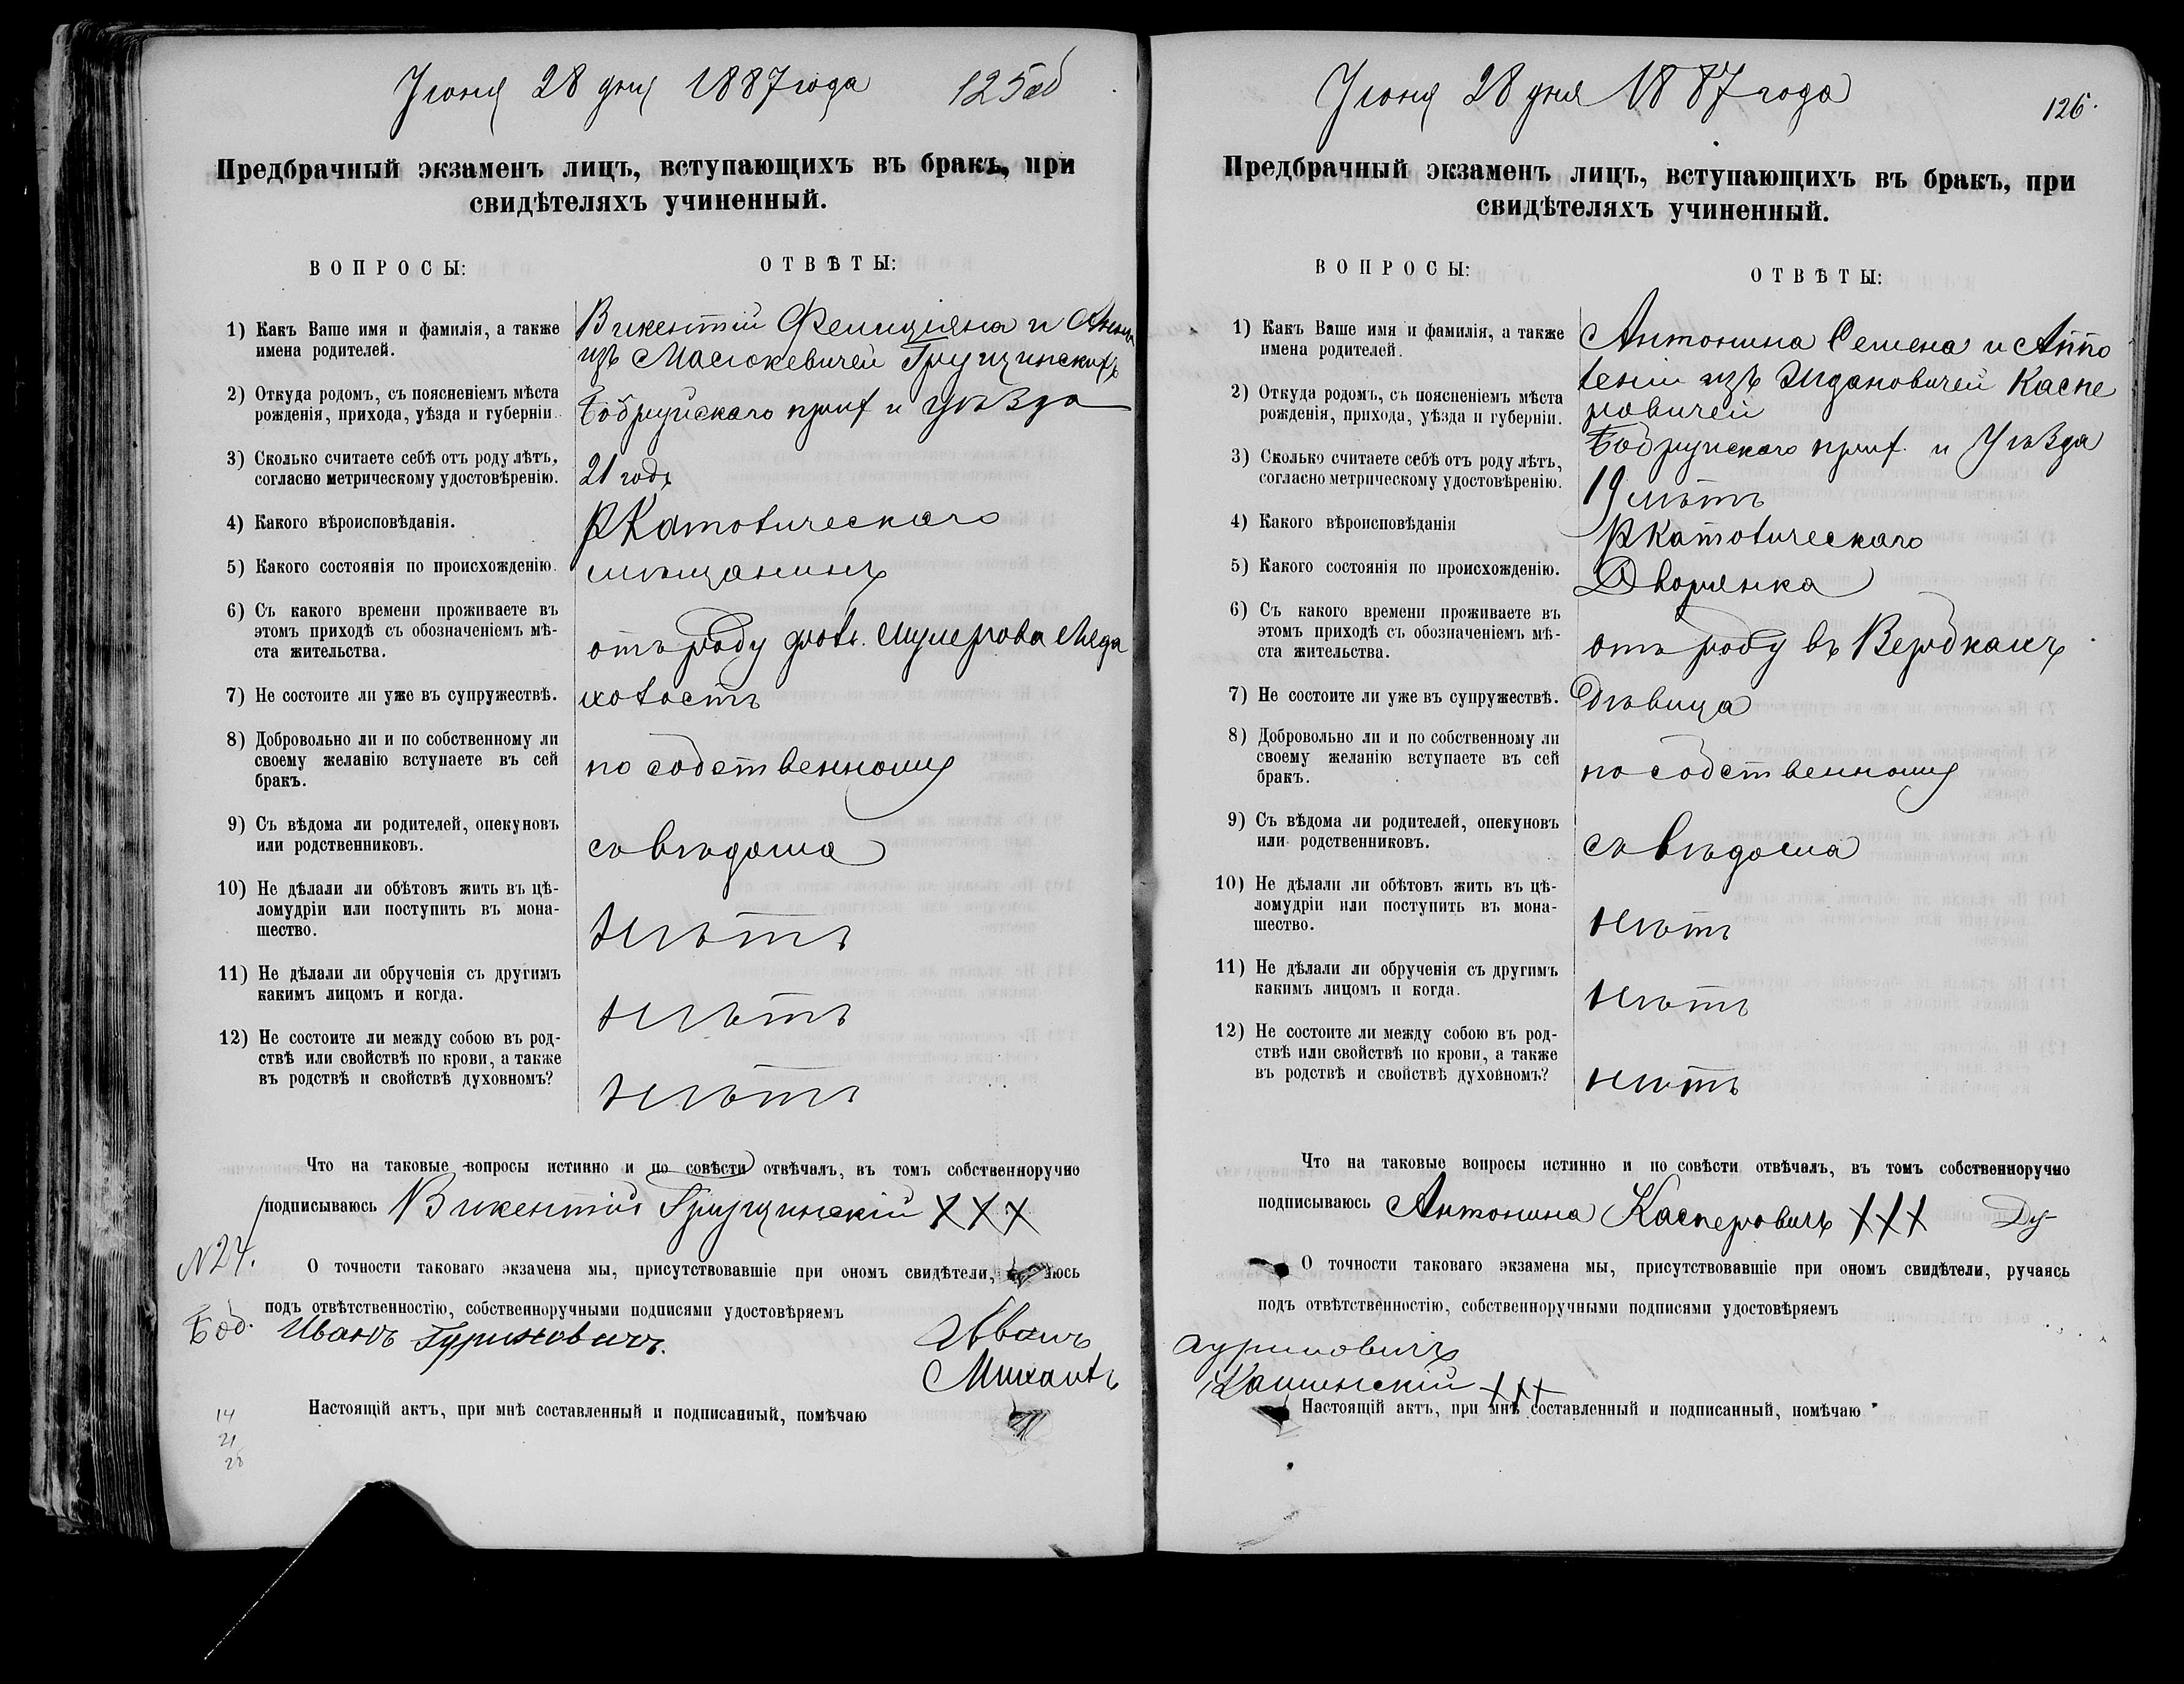 Июня 28 дня 1887 года 125 об
Предбрачный экзаменъ лицъ, вступающихъ въ бракъ, при
свидѣтеляхъ учиненный.
ВОПРОСЫ:
ОТВѢТЫ:
1) Какъ Ваше имя и фамилія, а также
имена родителей.
Викентій Фелиціяна и Анны
изъ Масюкевичей Грущинскихъ
2) Откуда родомъ, съ поясненіемъ мѣста
рожденія, прихода, уѣзда и губерніи.
Бобруйскаго прих и уѣзда
3) Сколько считаете себѣ отъ роду лѣтъ,
согласно метрическому удостовѣренію.
21 годъ
4) Какого вѣроисповѣданія.
РКатолическаго
5) Какого состоянія по происхожденію.
мѣщанинъ
6) Съ какого времени проживаете въ
этомъ приходѣ съ обозначеніемъ мѣ-
ста жительства.
отъ роду
7) Не состоите ли уже въ супружествѣ.
холостъ
8) Добровольно ли и по собственному ли
своему желанію вступаете въ сей
бракъ.
по собственному
9) Съ вѣдома ли родителей, опекуновъ
или родственниковъ.
съ вѣдома
10) Не дѣлали ли обѣтовъ жить въ цѣ-
ломудріи или поступить въ мона-
шество.
нѣтъ
11) Не дѣлали ли обрученія съ другимъ
какимъ лицомъ и когда.
нѣтъ
12) Не состоите ли между собою въ род-
ствѣ или свойствѣ по крови, а также
въ родствѣ и свойствѣ духовномъ?
нѣтъ
Что на таковые вопросы истинно и по совѣсти отвѣчалъ, въ томъ собственноручно
подписываюсь Викентій Грущинскій XXX
N 24.
О точности таковаго экзамена мы, присутствовавшіе при ономъ свидѣтели,
подъ отвѣтственностію, собственноручными подписями удостовѣряемъ
Боб. Иванъ Гуриновичъ.
Михаилъ
Настоящій актъ, при мнѣ составленный и подписанный, помѣчаю
14
21
28
Июня 28 дня 1887 года
126.
Предбрачный экзаменъ лицъ, вступающихъ въ бракъ, при
свидѣтеляхъ учиненный.
ВОПРОСЫ:
ОТВѢТЫ:
1) Какъ Ваше имя и фамилія, а также
имена родителей.
Антонина Семена и Аппо
леніи изъ Ждановичей Каспе
ровичей
2) Откуда родомъ, съ поясненіемъ мѣста
рожденія, прихода, уѣзда и губерніи.
Бобруйскаго прих. и Уѣзда
3) Сколько считаете себѣ отъ роду лѣтъ,
согласно метрическому удостовѣренію.
19 лѣтъ
4) Какого вѣроисповѣданія
РКатолическаго
5) Какого состоянія по происхожденію.
Дворянка
6) Съ какого времени проживаете въ
этомъ приходѣ съ обозначеніемъ мѣ-
ста жительства.
отъ роду въ Вербкахъ
7) Не состоите ли уже въ супружествѣ.
Дѣвица
8) Добровольно ли и по собственному ли
своему желанію вступаете въ сей
бракъ.
по собственному
9) Съ вѣдома ли родителей, опекуновъ
или родственниковъ.
съ вѣдома
10) Не дѣлали ли обѣтовъ жить въ цѣ-
ломудріи или поступить въ мона-
шество.
нѣтъ
11) Не дѣлали ли обрученія съ другимъ
какимъ лицомъ и когда.
нѣтъ
12) Не состоите ли между собою въ род-
ствѣ или свойствѣ по крови, а также
въ родствѣ и свойствѣ духовномъ?
нѣтъ
Что на таковые вопросы истинно и по совѣсти отвѣчалъ, въ томъ собственноручно
подписываюсь Антонина Касперовичъ XXX
О точности таковаго экзамена мы, присутствовавшіе при ономъ свидѣтели, ручаясь
подъ отвѣтственностію, собственноручными подписями удостовѣряемъ
Каминскій XXX
Настоящій актъ, при мнѣ составленный и подписанный, помѣчаю